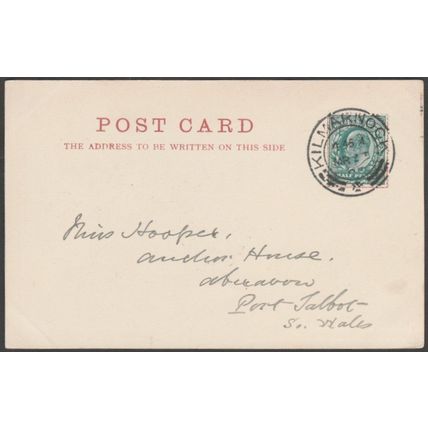 POST CARD
THE ADDRESS TO BE WRITTEN ON THIS SIDE
KILMARNOCK
HALF PE
Miss Hooper,
Anchor House,
Aberavon
Port Talbot
So. Wales